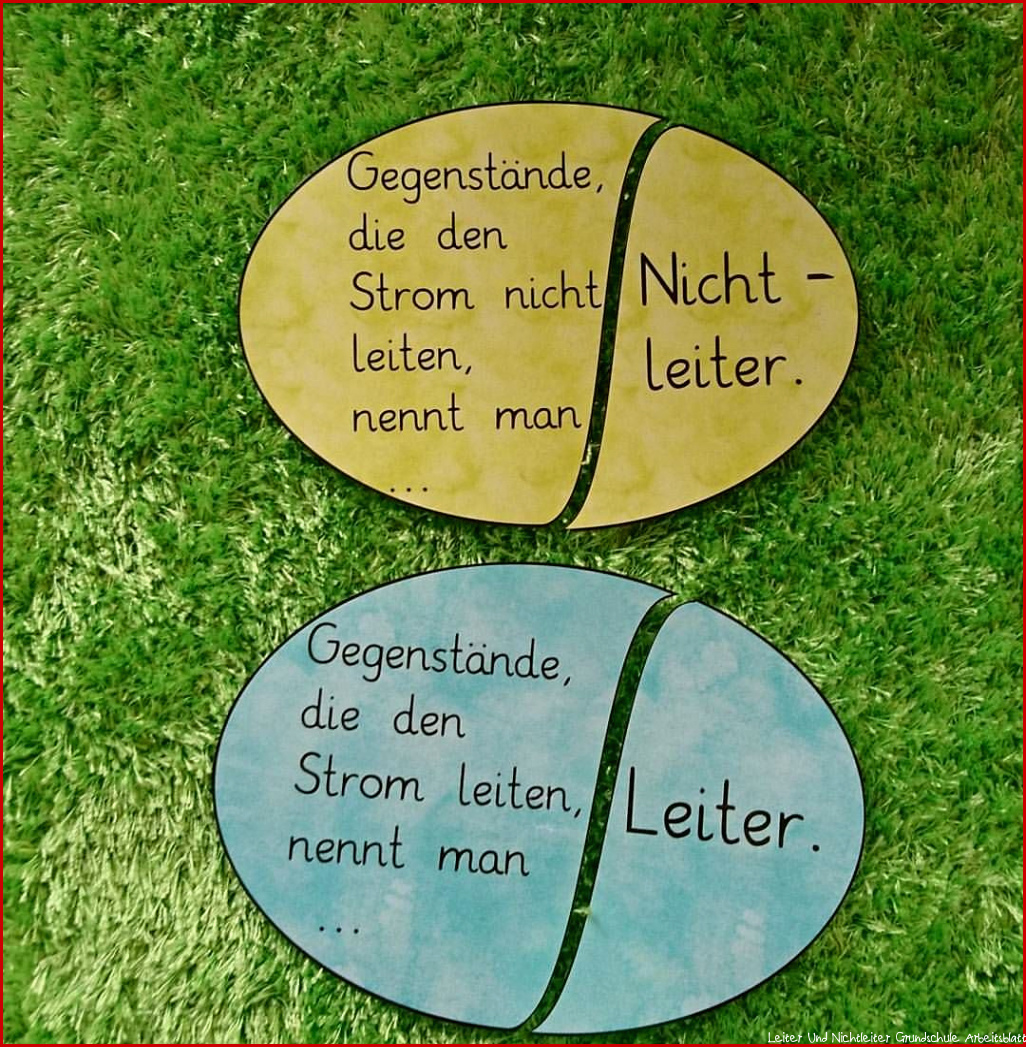 Gegenstände,
die den
Strom nicht
leiten,
nennt man
...
Nicht -
leiter.
Gegenstände,
die den
Strom leiten,
nennt man
...
Leiter.
Leiter Und Nichtleiter Grundschule Arbeitsblatt